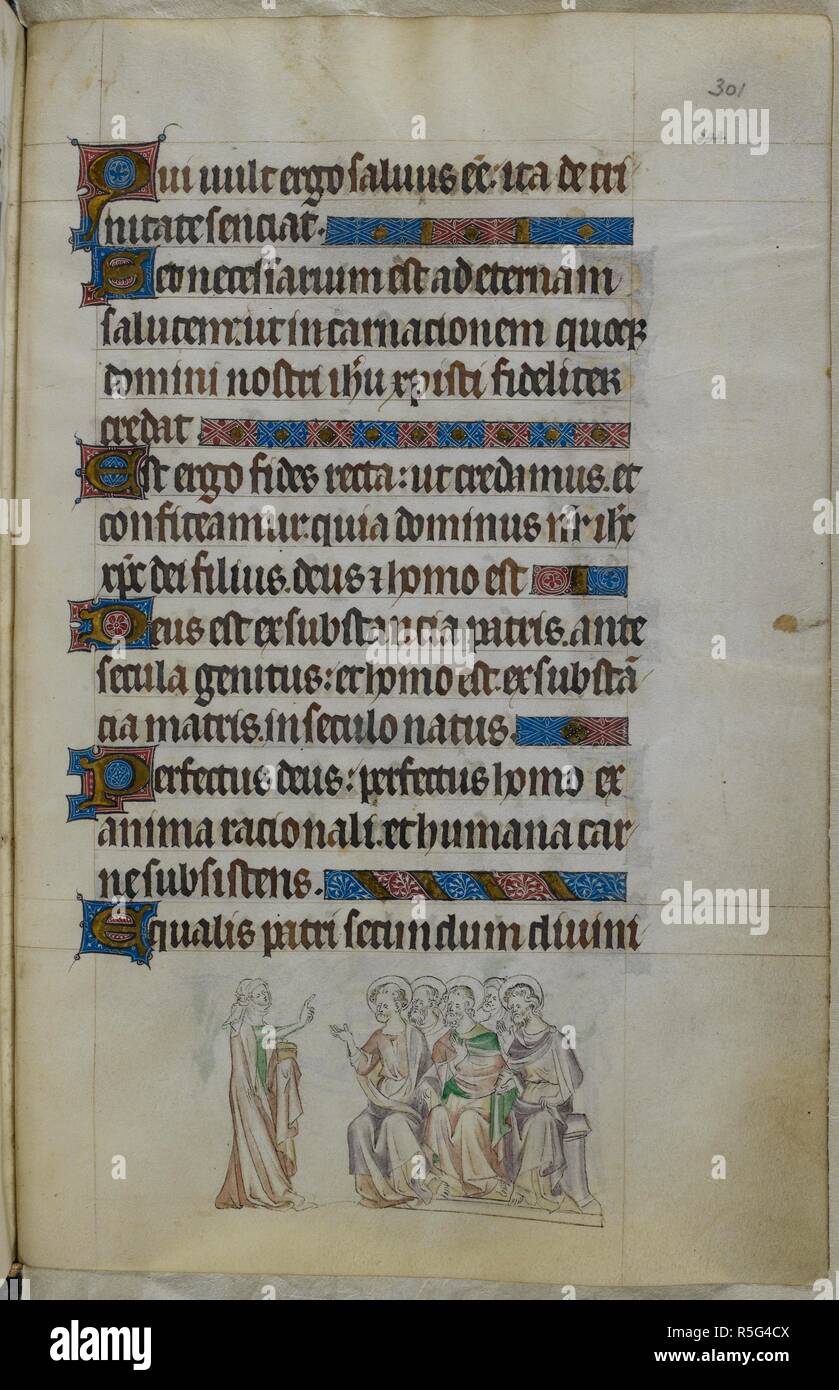 301
Qui uult ergo saluus eē: ita de tri
nitate senciat.
Set necessarium est ad eternam
salutem: ut incarnacionem quoqꝫ
domini nostri ihu xpisti fideliter
credat
Est ergo fides recta: ut credamus. et
confiteamur. quia dominus nr̄ ihc
xpc dei filius. deus ⁊ homo est
Deus est ex substancia patris. ante
secula genitus: et homo est. ex substā
cia matris. in seculo natus.
Perfectus deus: perfectus homo ex
anima racionali. et humana car
ne subsistens.
Equalis patri secundum diuini
alamy
Image ID: R5G4CX
www.alamy.com